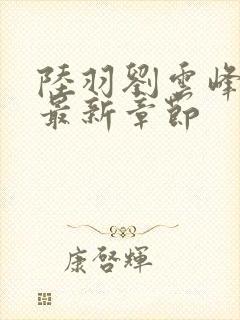 陸羽劉雲峰
最新章節
康啓輝